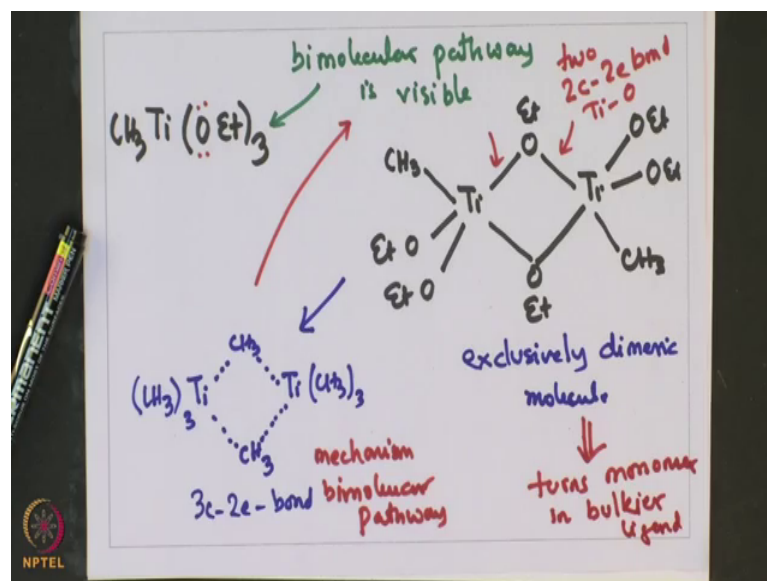 bimolecular pathway
is visible
CH3Ti(ÖEt)3
two
2c-2e bond
Ti-O
Et
O
OEt
CH3
Ti
Ti
OEt
Et O
Et O
O
Et
CH3
exclusively dimeric
molecule
turns monomer
in bulkier
ligand
CH3
(CH3)3Ti
Ti(CH3)3
CH3
3c-2e-bond
mechanism
bimolecular
pathway
PERMANENT
NPTEL